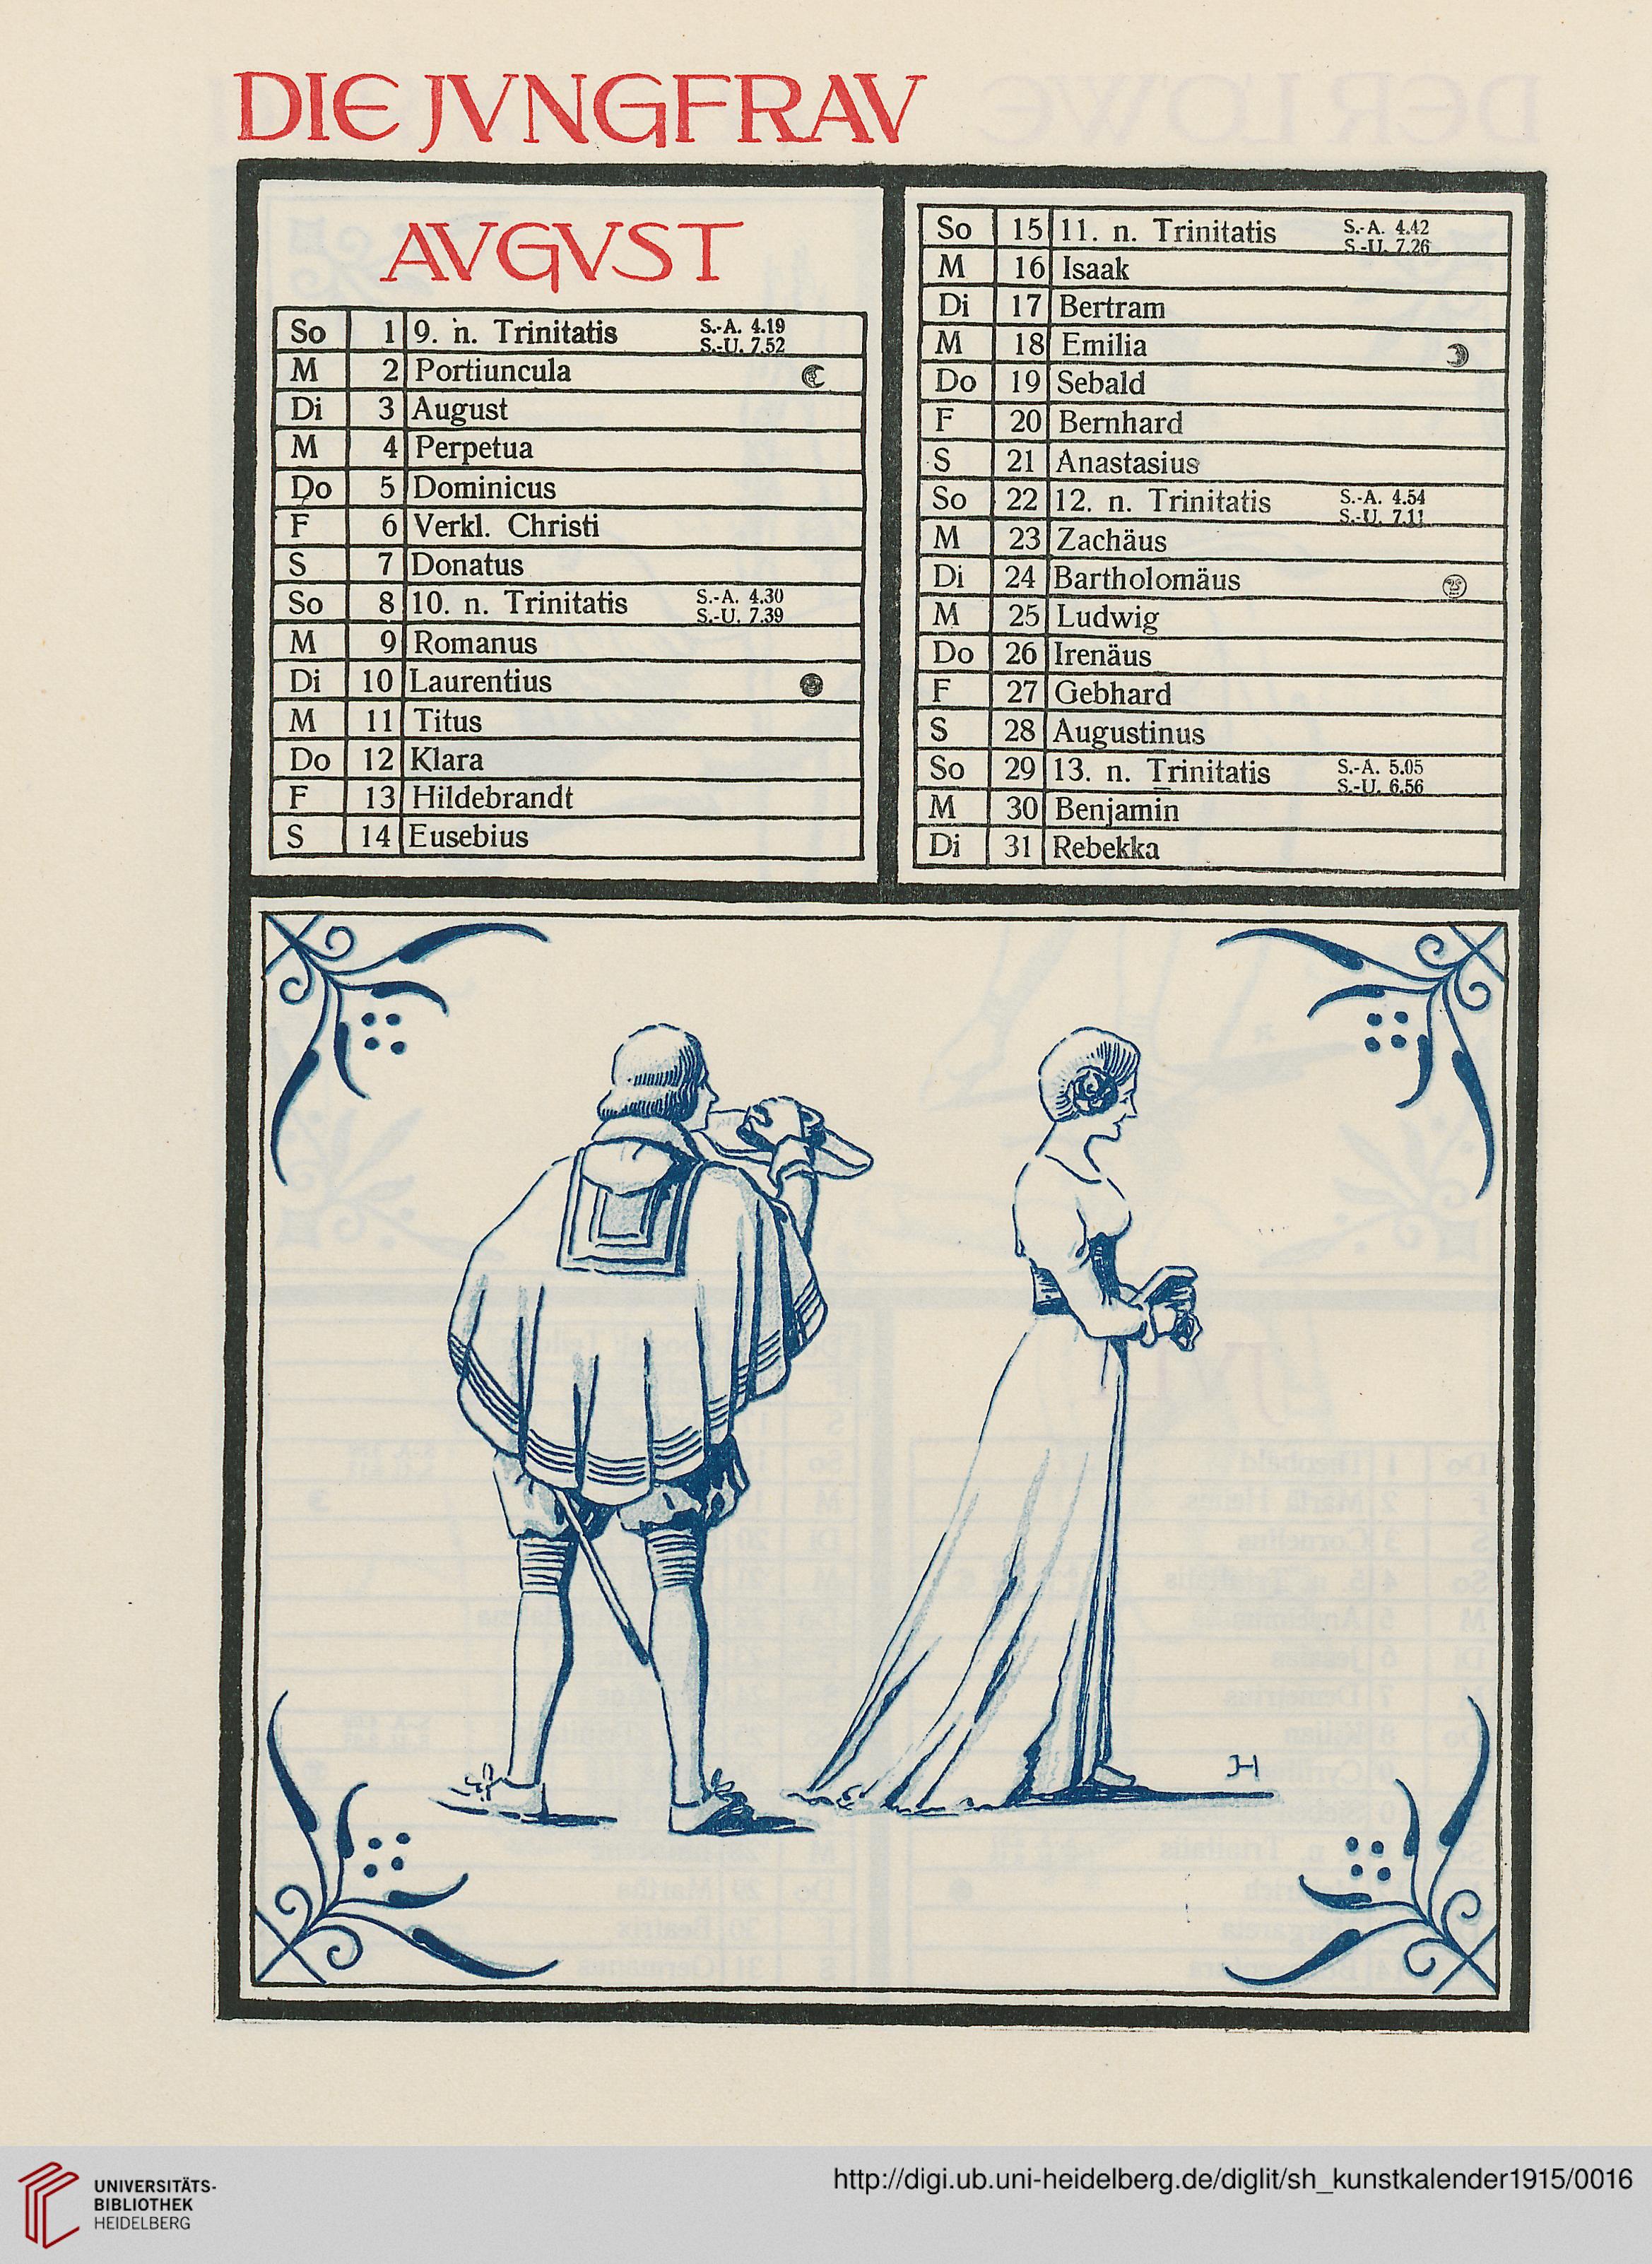 DIE JVNGFRAV
AVGVST
So 1 9. n. Trinitatis S.-A. 4.19 S.-U. 7.52
M 2 Portiuncula
Di 3 August
M 4 Perpetua
Do 5 Dominicus
F 6 Verkl. Christi
S 7 Donatus
So 8 10. n. Trinitatis S.-A. 4.30 S.-U. 7.39
M 9 Romanus
Di 10 Laurentius
M 11 Titus
Do 12 Klara
F 13 Hildebrandt
S 14 Eusebius
So 15 11. n. Trinitatis S.-A. 4.42 S.-U. 7.26
M 16 Isaak
Di 17 Bertram
M 18 Emilia
Do 19 Sebald
F 20 Bernhard
S 21 Anastasius
So 22 12. n. Trinitatis S.-A. 4.54 S.-U. 7.11
M 23 Zachäus
Di 24 Bartholomäus
M 25 Ludwig
Do 26 Irenäus
F 27 Gebhard
S 28 Augustinus
So 29 13. n. Trinitatis S.-A. 5.05 S.-U. 6.56
M 30 Benjamin
Di 31 Rebekka
JH
UNIVERSITÄTS-
BIBLIOTHEK
HEIDELBERG
http://digi.ub.uni-heidelberg.de/diglit/sh_kunstkalender1915/0016